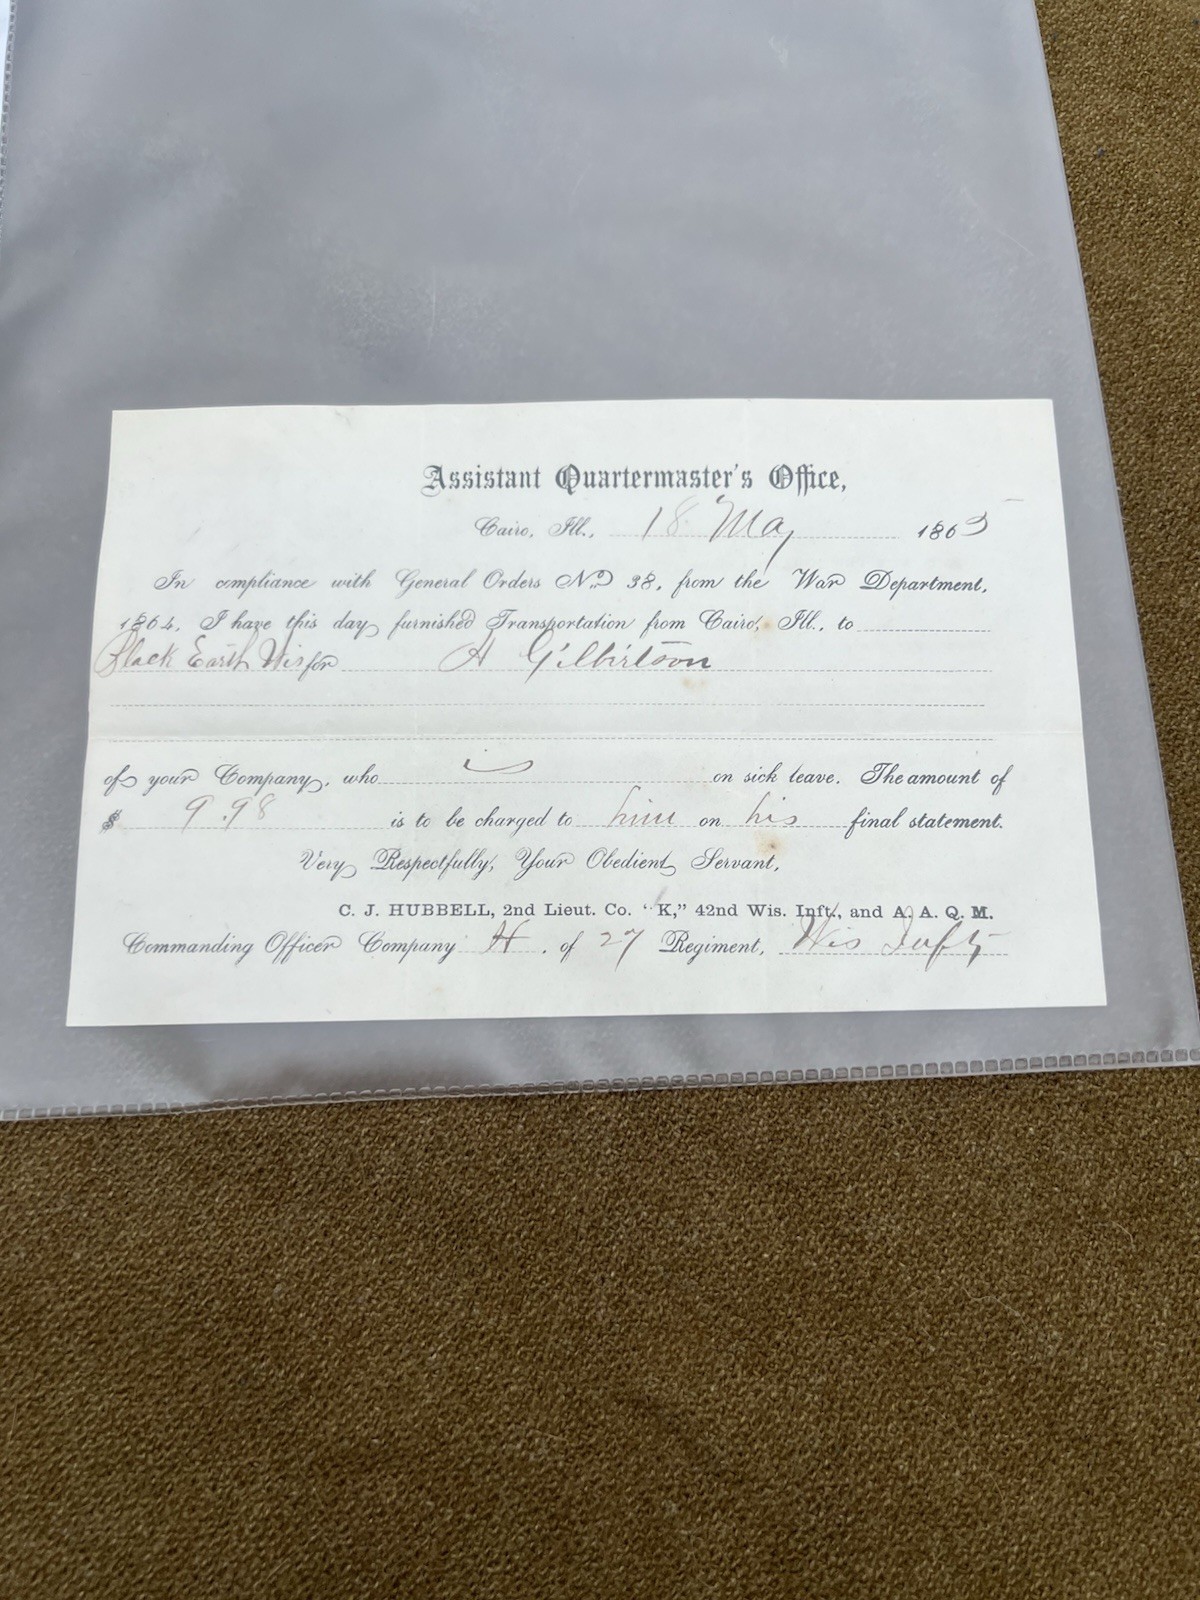 Assistant Quartermaster's Office,
Cairo, Ill., 18 May 1865
In compliance with General Orders No. 38, from the War Department,
1864, I have this day furnished Transportation from Cairo, Ill., to
Black Earth Wis for A Gilbertson
of your Company, who is on sick leave. The amount of
$ 9.98 is to be charged to him on his final statement.
Very Respectfully, Your Obedient Servant,
C. J. HUBBELL, 2nd Lieut. Co. "K," 42nd Wis. Inft., and A. A. Q. M.
Commanding Officer Company H, of 27 Regiment, Wis Infty